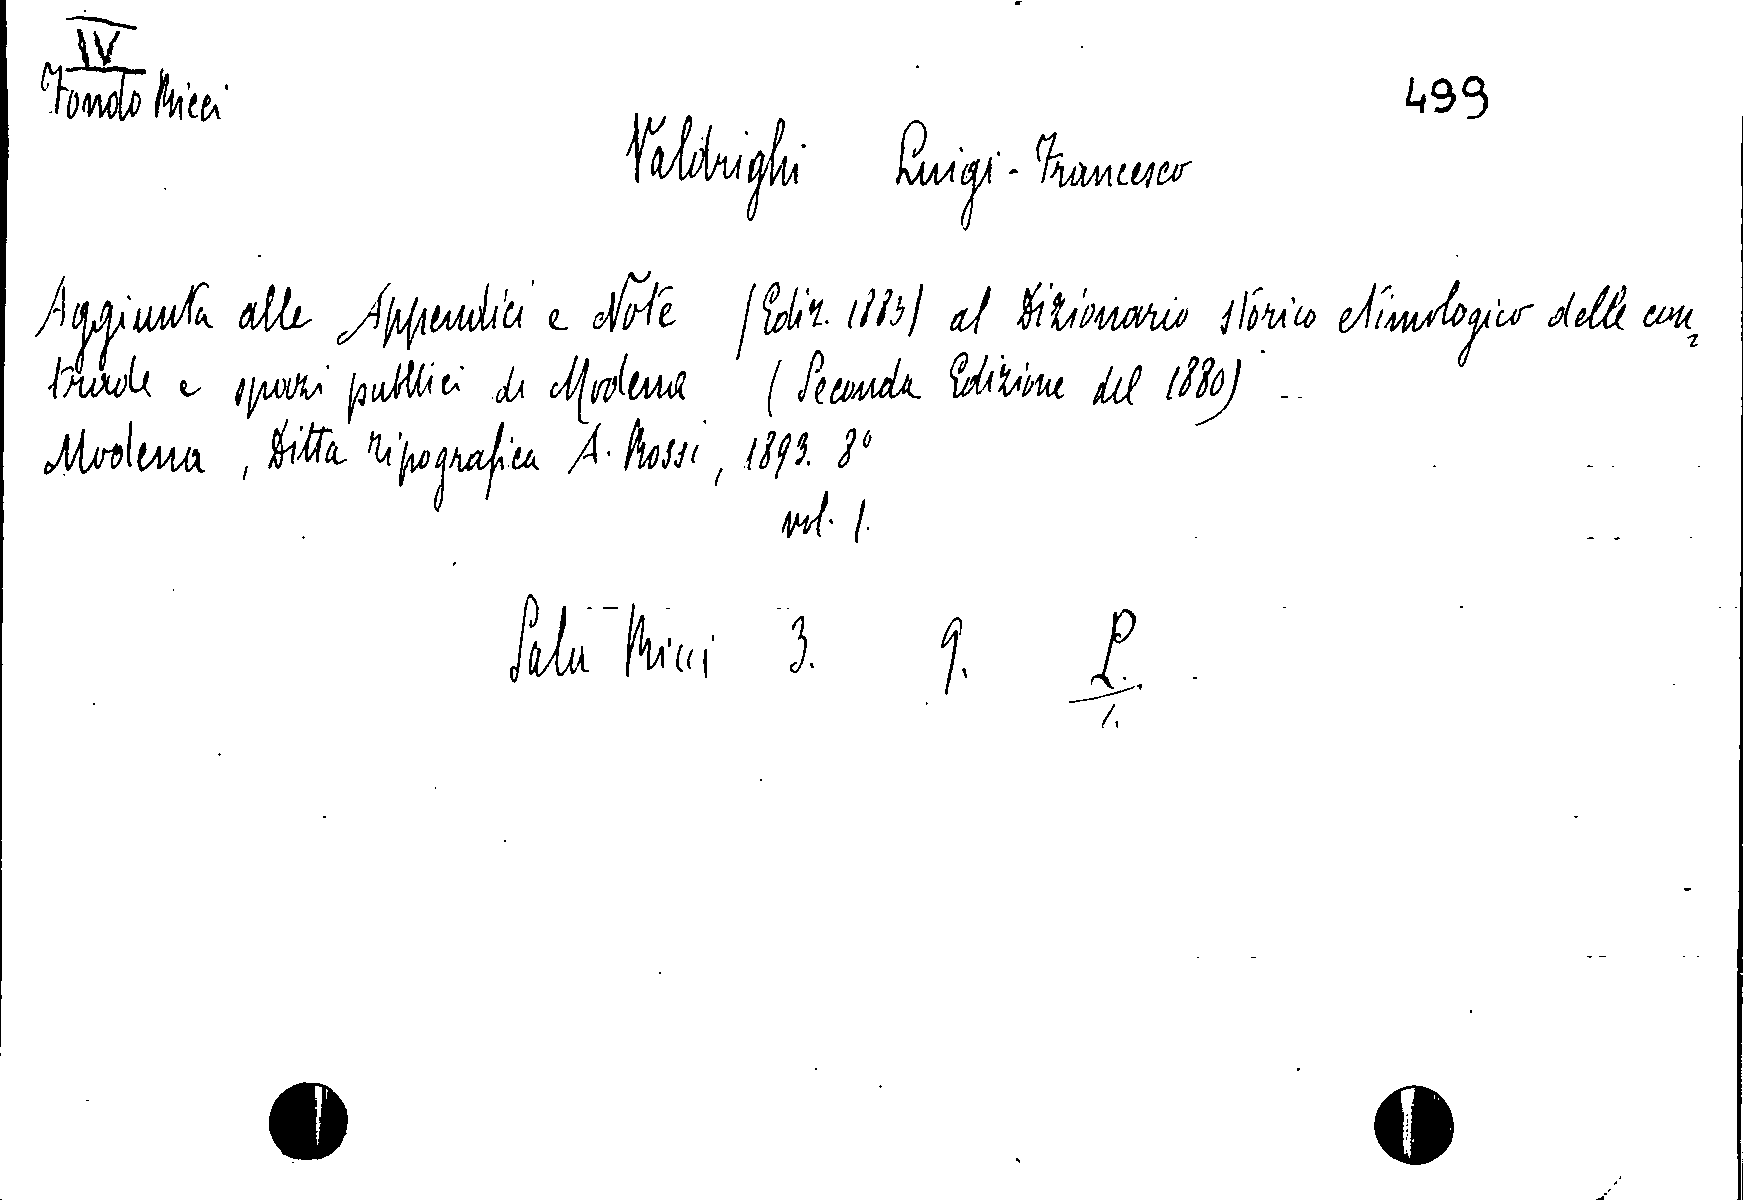 IV
Fondo Ricci
499
Valdrighi Luigi-Francesco
Aggiunta alle Appendici e Note (Ediz. 1883) al Dizionario storico etimologico delle con=
trade e spazi pubblici di Modena (Seconda Edizione del 1880)
Modena, Ditta tipografica A. Rossi, 1893. 8°
vol. 1.
Sala Ricci 3. 9. L.
1.